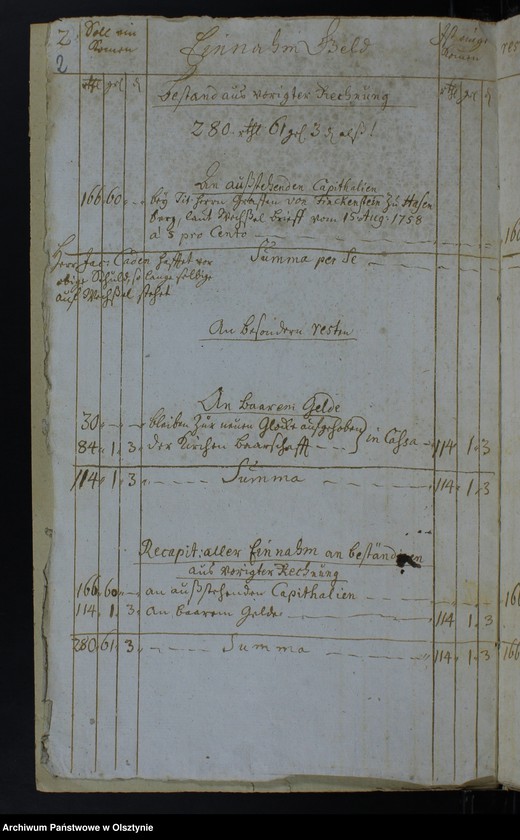 2
2
Soll ein Komen
Einnahm Geld
Ist einge Komen
rest
rthl gel d
rthl gel d
bestand aus voriger Rechnung
280 rthl 61 gel 3 d alß!
An außstehenden Capithalien
166 60 - bey Tit: Herrn Graffen von Finckenstein zu Hasen
berg, laut Wechßel brieff vom 15 Aug: 1758
à 5 pro Cento
Summa per Se
Herr Jac: Caden hafftet vor
obige Schuld, so lange selbige
auf Wechßel stehet
An besondern resten
An baarem Gelde
30 - - bleiben zur neuen Glocke aufgehoben
84 1 3 der Kirchen baarschafft } in Cassa 114 1 3
114 1 3 Summa 114 1 3
Recapit: aller Einnahm an beständigen
aus voriger Rechnung
166 60 - an außstehenden Capithalien
114 1 3 an baarem Gelde 114 1 3
280 61 3 Summa 114 1 3
166
Archiwum Państwowe w Olsztynie